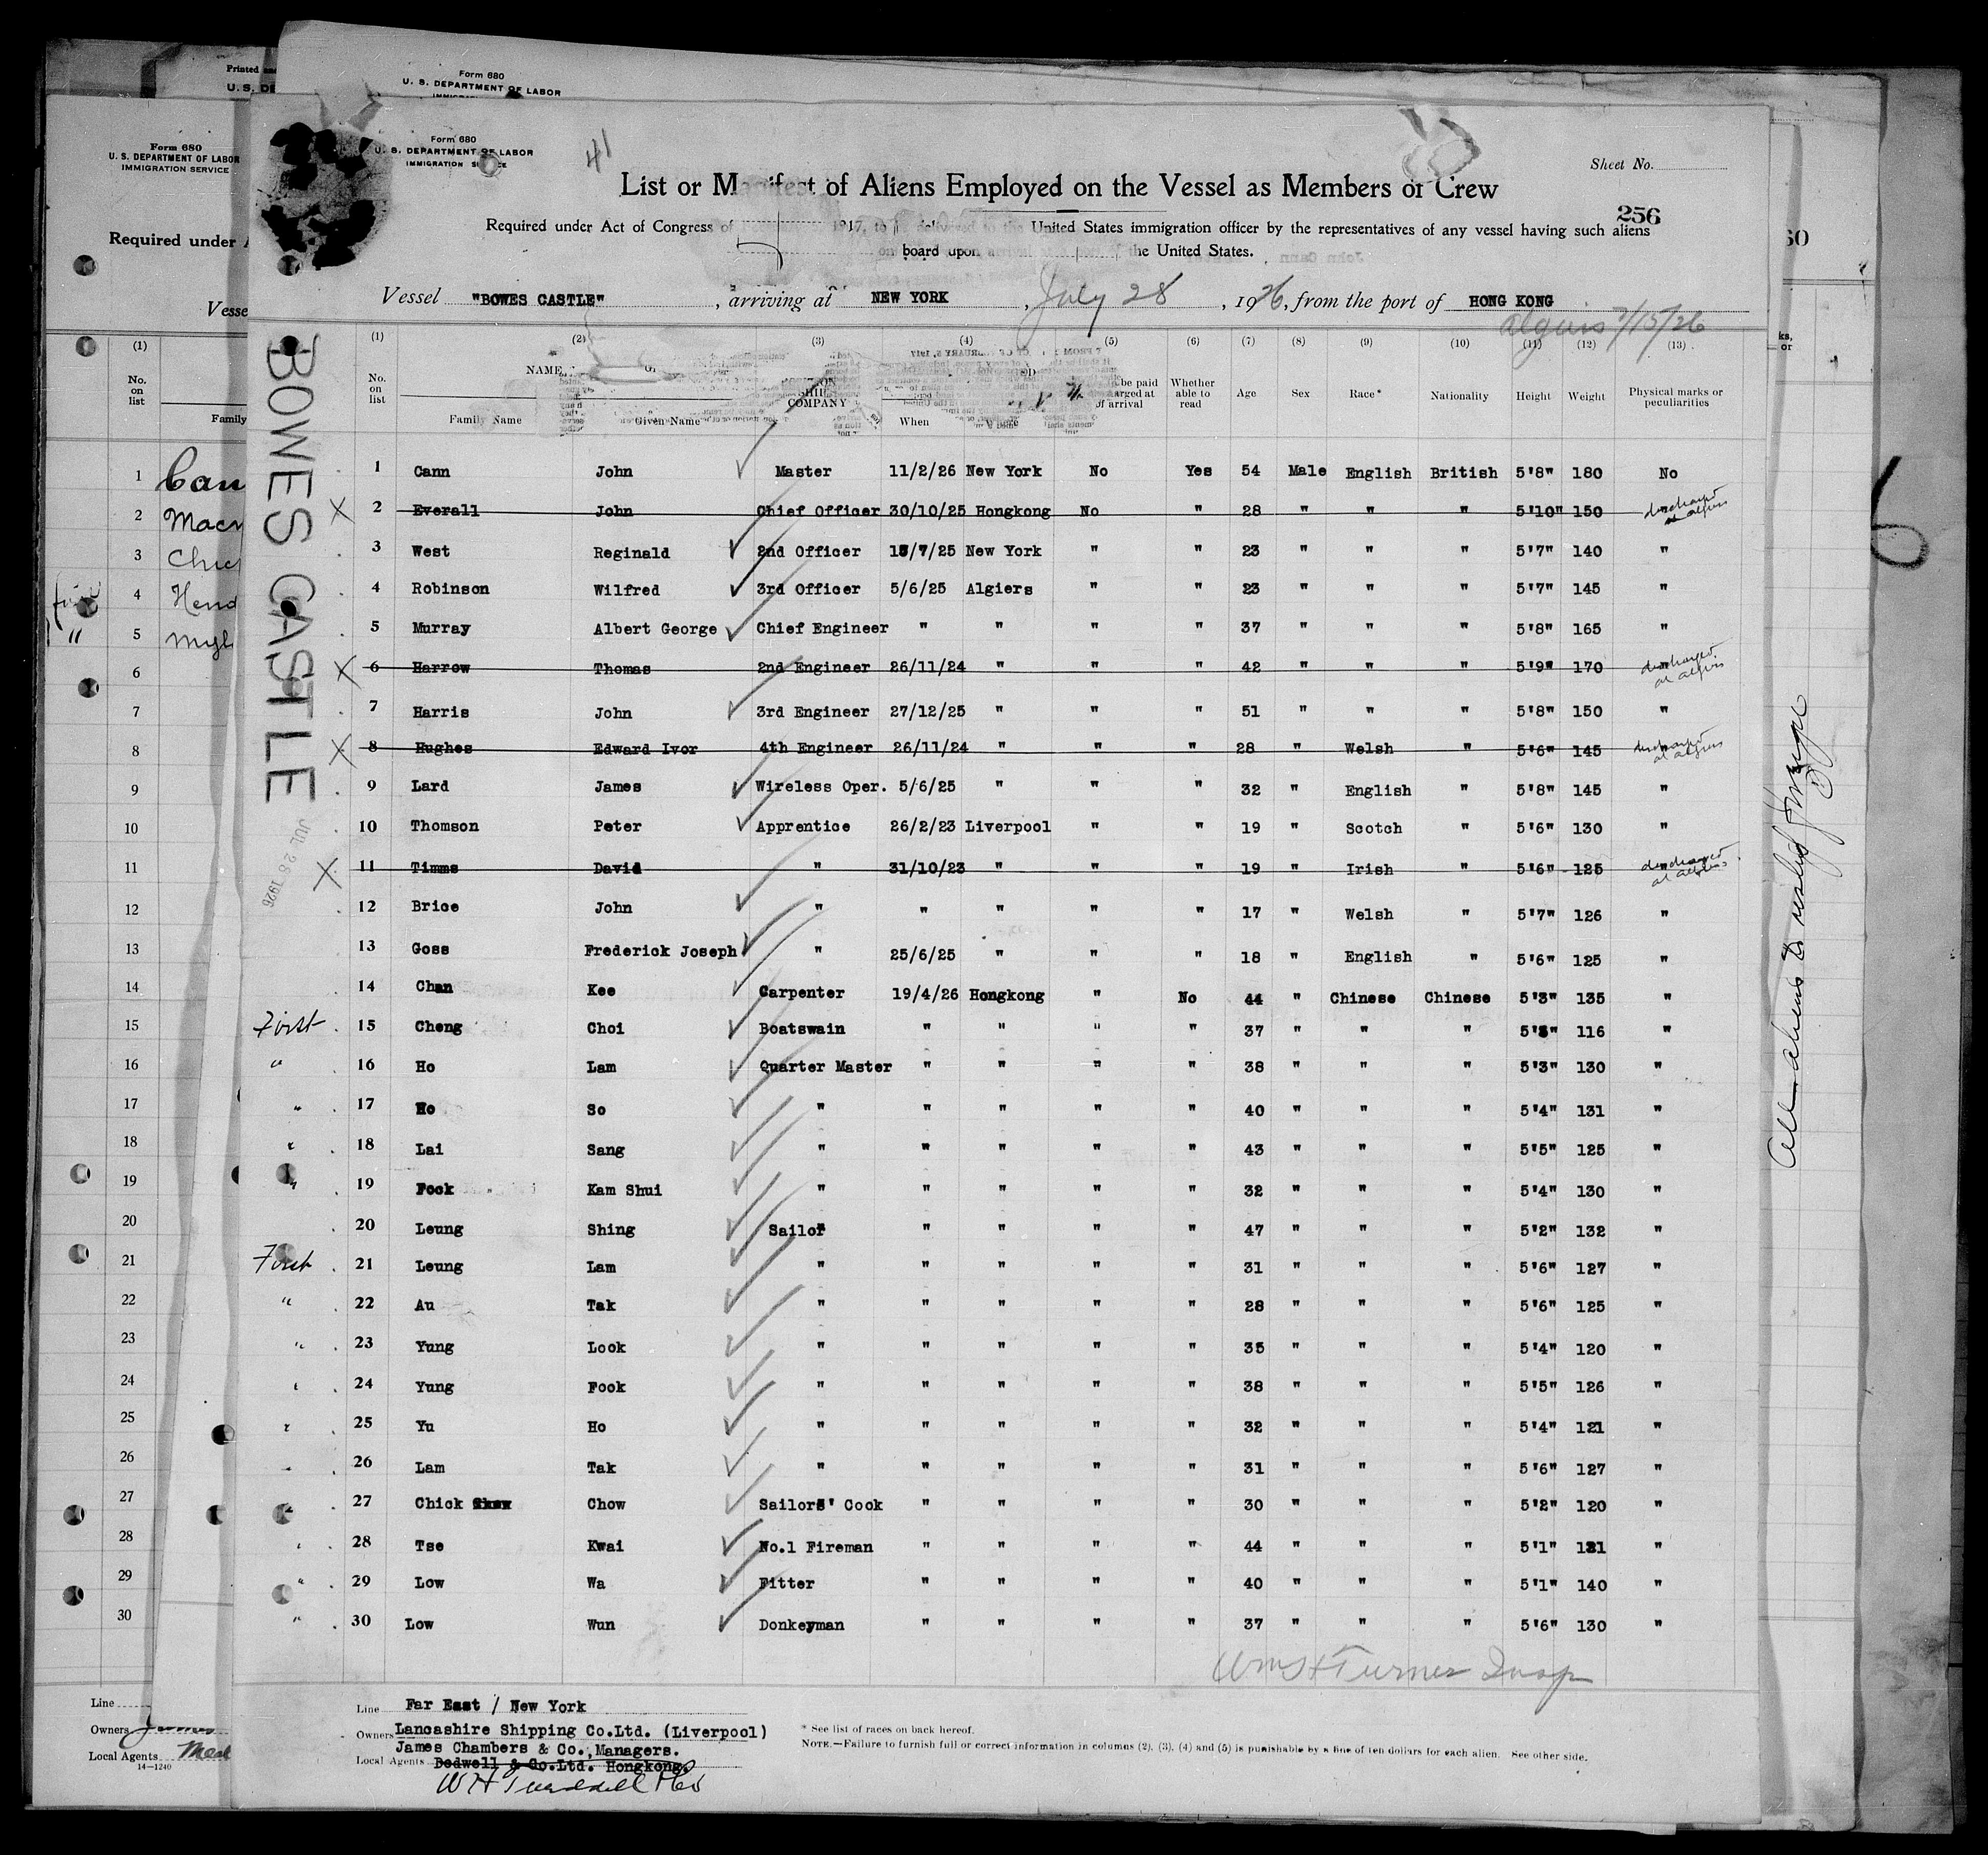 Form 680
U. S. DEPARTMENT OF LABOR
Printed
U. S.
Form 680
U. S. DEPARTMENT OF LABOR
IMMIGRATION SERVICE
Required under
(1)
No.
on
list
Family
1
2
3
4
5
6
7
8
9
10
11
12
13
14
15
16
17
18
19
20
21
22
23
24
25
26
27
28
29
30
Line
Owners
Local Agents
14—1240
Form 680
U. S. DEPARTMENT OF LABOR
IMMIGRATION
41
Sheet No.
List or Manifest of Aliens Employed on the Vessel as Members of Crew
256
Required under Act of Congress of 1917, to be delivered to the United States immigration officer by the representatives of any vessel having such aliens
on board upon arrival the United States.
Vessel "BOWES CASTLE", arriving at NEW YORK, July 28, 1926, from the port of HONG KONG
7/15/26
BOWES CASTLE
JUL 28 1926
(1) (2) (3) (4) (5) (6) (7) (8) (9) (10) (11) (12) (13)
No. on list NAME Family Name Given Name SHIP COMPANY When Whether able to read Age Sex Race* Nationality Height Weight Physical marks or peculiarities
1 Cann John Master 11/2/26 New York No Yes 54 Male English British 5'8" 180 No
X 2 Everall John Chief Officer 30/10/25 Hongkong No " 28 " " " 5'10" 150 discharged at algiers
3 West Reginald 2nd Officer /7/25 New York " " 23 " " " 5'7" 140 "
4 Robinson Wilfred 3rd Officer 5/6/25 Algiers " " 23 " " " 5'7" 145 "
5 Murray Albert George Chief Engineer " " " " 37 " " " 5'8" 165 "
X 6 Harrow Thomas 2nd Engineer 26/11/24 " " " 42 " " " 5'9" 170 discharged at algiers
7 Harris John 3rd Engineer 27/12/25 " " " 51 " " " 5'8" 150 "
X 8 Hughes Edward Ivor 4th Engineer 26/11/24 " " " 28 " Welsh " 5'6" 145 discharged at algiers
9 Lard James Wireless Oper. 5/6/25 " " " 32 " English " 5'8" 145 "
10 Thomson Peter Apprentice 26/2/23 Liverpool " " 19 " Scotch " 5'6" 130 "
X 11 Timms David " 31/10/23 " " " 19 " Irish " 5'6" 125 discharged at algiers
12 Brice John " " " " " 17 " Welsh " 5'7" 126 "
13 Goss Frederick Joseph " 25/6/25 " " " 18 " English " 5'6" 125 "
14 Chan Kee Carpenter 19/4/26 Hongkong " No 44 " Chinese Chinese 5'3" 135 "
First 15 Cheng Choi Boatswain " " " " 37 " " " 116 "
" 16 Ho Lam Quarter Master " " " " 38 " " " 5'3" 130 "
" 17 Ho So " " " " " 40 " " " 5'4" 131 "
" 18 Lai Sang " " " " " 43 " " " 5'5" 125 "
" 19 Fook Kam Shui " " " " " 32 " " " 5'4" 130 "
20 Leung Shing Sailor " " " " 47 " " " 5'2" 132 "
First 21 Leung Lam " " " " " 31 " " " 5'6" 127 "
" 22 Au Tak " " " " " 28 " " " 5'6" 125 "
" 23 Yung Look " " " " " 35 " " " 5'4" 120 "
" 24 Yung Fook " " " " " 38 " " " 5'5" 126 "
" 25 Yu Ho " " " " " 32 " " " 5'4" 121 "
" 26 Lam Tak " " " " " 31 " " " 5'6" 127 "
" 27 Chick Chow Sailors' Cook " " " " 30 " " " 5'2" 120 "
" 28 Tse Kwai No.1 Fireman " " " " 44 " " " 5'1" "
" 29 Low Wa Fitter " " " " 40 " " " 5'1" 140 "
" 30 Low Wun Donkeyman " " " " 37 " " " 5'6" 130 "
Wm H Turner Insp
Line Far East / New York
Owners Lancashire Shipping Co.Ltd. (Liverpool)
James Chambers & Co., Managers.
Local Agents Dodwell & Co.Ltd. Hongkong.
* See list of races on back hereof.
NOTE.—Failure to furnish full or correct information in columns (2), (3), (4) and (5) is punishable by a fine of ten dollars for each alien. See other side.